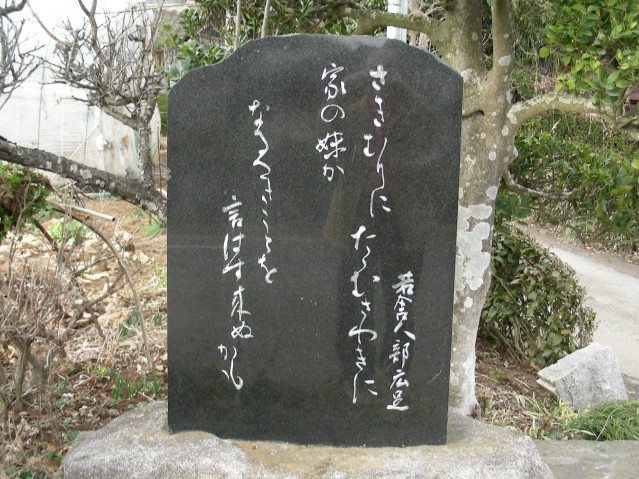 若舎人部広足
さきむりに たゝむさわきに
家の妹か
なるへきことを
言はす来ぬかも